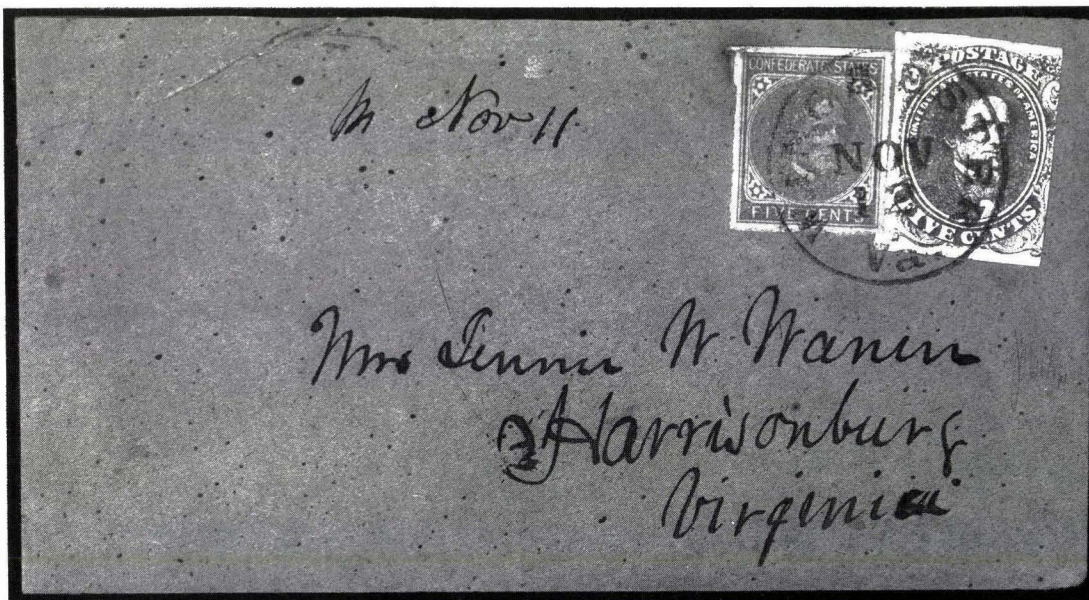 m Nov 11
CONFEDERATE STATES
FIVE CENTS
POSTAGE
CONFEDERATE STATES OF AMERICA
FIVE CENTS
NOV
Va
Mrs Jennie W Warren
Harrisonburg
Virginia